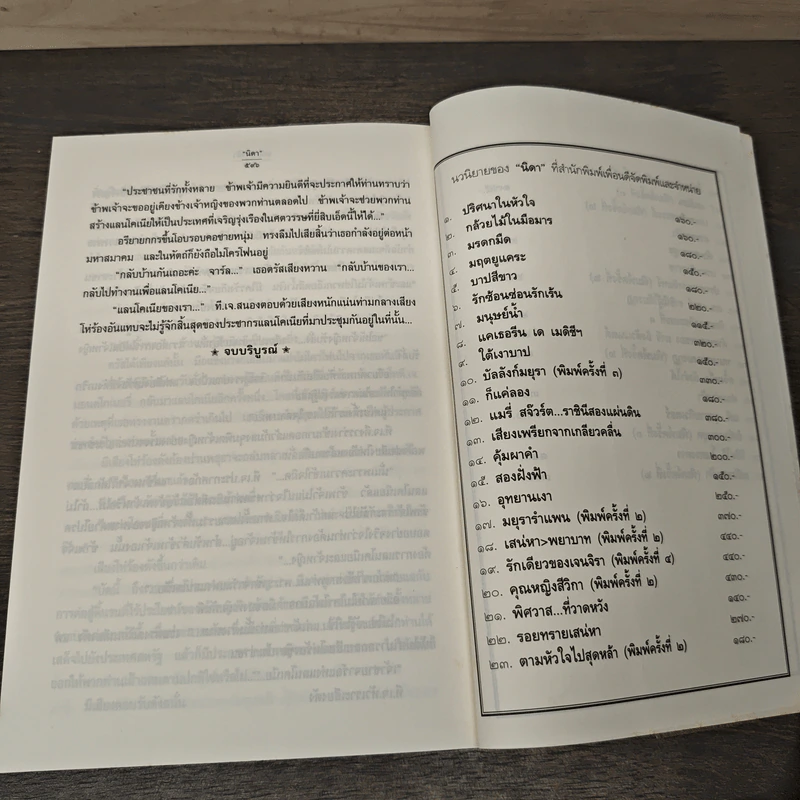 "นิดา"
๕๙๖
"ประชาชนที่รักทั้งหลาย ข้าพเจ้ามีความยินดีที่จะประกาศให้ท่านทราบว่า
ข้าพเจ้าจะขออยู่เคียงข้างเจ้าหญิงของพวกท่านตลอดไป ข้าพเจ้าจะช่วยพวกท่าน
สร้างแลนโคเนียให้เป็นประเทศที่เจริญรุ่งเรืองในศตวรรษที่ยี่สิบเอ็ดนี้ให้ได้..."
อริยายกกรขึ้นโอบรอบคอชายหนุ่ม ทรงลืมไปเสียสิ้นว่าเธอกำลังอยู่ต่อหน้า
มหาสมาคม และในหัตถ์ก็ยังถือไมโครโฟนอยู่
"กลับบ้านกันเถอะค่ะ จาร์ล..." เธอตรัสเสียงหวาน "กลับบ้านของเรา...
กลับไปทำงานเพื่อแลนโคเนีย..."
"แลนโคเนียของเรา..." ที.เจ.สนองตอบด้วยเสียงหนักแน่นท่ามกลางเสียง
โห่ร้องอันแทบจะไม่รู้จักสิ้นสุดของประชากรแลนโคเนียที่มาประชุมกันอยู่ในที่นั้น...
★ จบบริบูรณ์ ★
นวนิยายของ "นิดา" ที่สำนักพิมพ์เพื่อนดีจัดพิมพ์และจำหน่าย
๑. ปริศนาในหัวใจ ๑๖๐.-
๒. กล้วยไม้ในมือมาร ๑๖๐.-
๓. มรดกมืด ๑๘๐.-
๔. มฤตยูแคระ ๑๕๐.-
๕. บาปสีขาว ๑๘๐.-
๖. รักซ้อนซ่อนรักเร้น ๒๒๐.-
๗. มนุษย์น้ำ ๑๑๕.-
๘. แคเธอรีน เด เมดิซีฯ ๓๒๐.-
๙. ใต้เงาบาป ๑๕๐.-
๑๐. บัลลังก์มยุรา (พิมพ์ครั้งที่ ๓) ๓๓๐.-
๑๑. ก็แค่ลอง ๑๘๐.-
๑๒. แมรี่ สจ๊วร์ต...ราชินีสองแผ่นดิน ๓๘๐.-
๑๓. เสียงเพรียกจากเกลียวคลื่น ๓๐๐.-
๑๔. คุ้มผาคำ ๒๐๐.-
๑๕. สองฝั่งฟ้า ๑๕๐.-
๑๖. อุทยานเงา ๒๕๐.-
๑๗. มยุรารำแพน (พิมพ์ครั้งที่ ๒) ๓๗๐.-
๑๘. เสน่หา>พยาบาท (พิมพ์ครั้งที่ ๒) ๔๔๐.-
๑๙. รักเดียวของเจนจิรา (พิมพ์ครั้งที่ ๔) ๔๔๐.-
๒๐. คุณหญิงสีวิกา (พิมพ์ครั้งที่ ๒) ๔๓๐.-
๒๑. พิศวาส...ที่วาดหวัง ๑๔๐.-
๒๒. รอยทรายเสน่หา ๒๗๐.-
๒๓. ตามหัวใจไปสุดหล้า (พิมพ์ครั้งที่ ๒) ๑๘๐.-